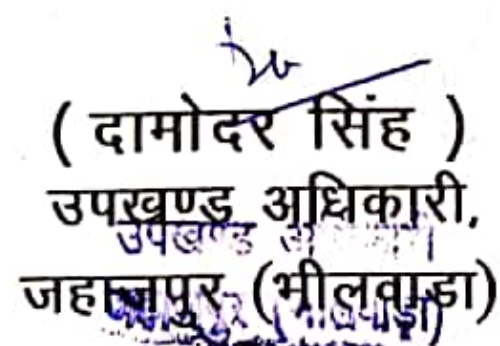 ( दामोदर सिंह )
उपखण्ड अधिकारी,
जहाजपुर (भीलवाडा)
उपखण्ड